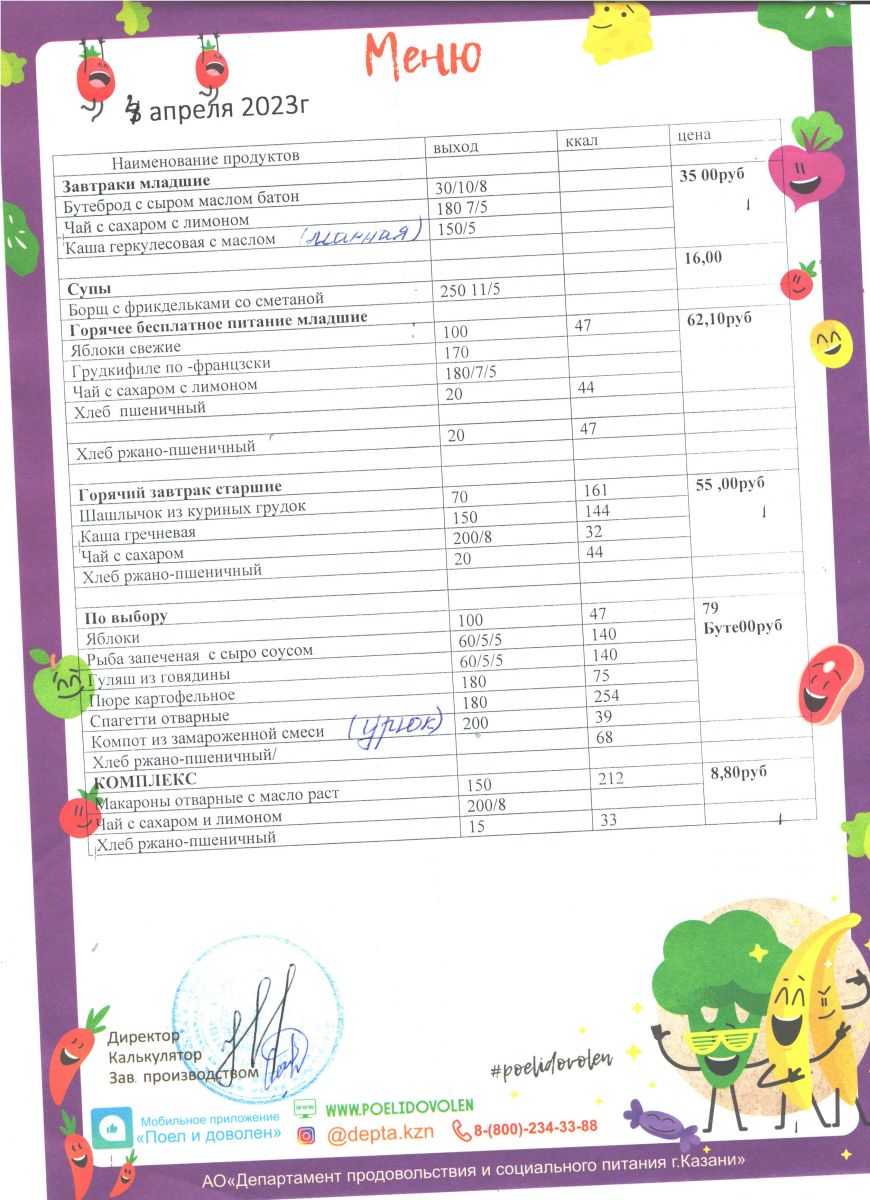 Меню
апреля 2023г
Наименование продуктов выход ккал цена
Завтраки младшие 35 00руб
Бутеброд с сыром маслом батон 30/10/8
Чай с сахаром с лимоном 180 7/5
Каша геркулесовая с маслом (манная) 150/5
Супы 16,00
Борщ с фрикдельками со сметаной 250 11/5
Горячее бесплатное питание младшие 62,10руб
Яблоки свежие 100 47
Грудкифиле по -францзски 170
Чай с сахаром с лимоном 180/7/5
Хлеб пшеничный 20 44
Хлеб ржано-пшеничный 20 47
Горячий завтрак старшие 55 ,00руб
Шашлычок из куриных грудок 70 161
Каша гречневая 150 144
Чай с сахаром 200/8 32
Хлеб ржано-пшеничный 20 44
По выбору 79
Буте00руб
Яблоки 100 47
Рыба запеченая с сыро соусом 60/5/5 140
Гуляш из говядины 60/5/5 140
Пюре картофельное 180 75
Спагетти отварные 180 254
Компот из замароженной смеси (урюк) 200 39
Хлеб ржано-пшеничный/ 68
КОМПЛЕКС 8,80руб
Макароны отварные с масло раст 150 212
Чай с сахаром и лимоном 200/8
Хлеб ржано-пшеничный 15 33
Директор
Калькулятор
Зав. производством
#poelidovolen
Мобильное приложение
«Поел и доволен»
WWW.POELIDOVOLEN
@depta.kzn 8-(800)-234-33-88
АО«Департамент продовольствия и социального питания г.Казани»